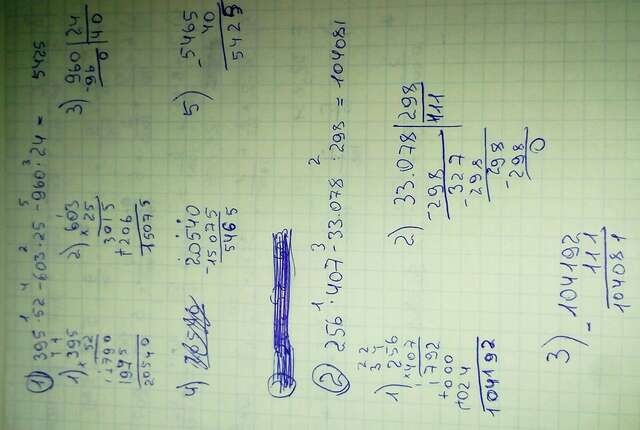 1) 395·52-603·25-960:24= 5425
1 4 2 5 3
1) 395
×52
1790
1975
20540
2) 603
×25
3015
+206
15075
3) 960 | 24
-96 | 40
0
4)
20540
-15075
5465
5) 5465
- 40
5425
2) 256·407-33.078:298=104081
1 3 2
1) 256
×407
1792
+000
1024
104192
2) 33.078 | 298
-298 | 111
327
-298
298
-298
0
3) 104192
- 111
104081